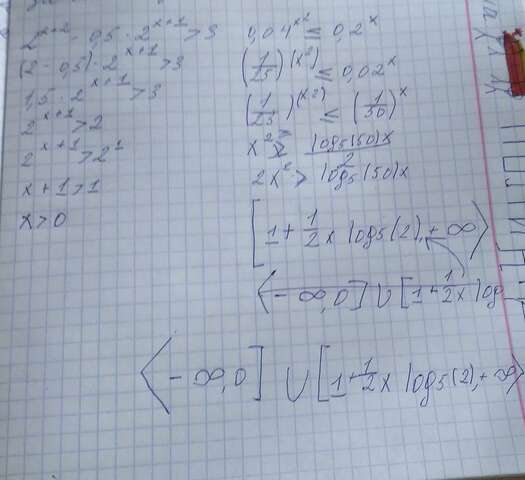 2^{x+2} - 0,5 · 2^{x+1} > 3
(2 - 0,5) · 2^{x+1} > 3
1,5 · 2^{x+1} > 3
2^{x+1} > 2
2^{x+1} > 2^1
x + 1 > 1
x > 0
0,04^{x^2} ≤ 0,2^x
(1/25)^{(x^2)} ≤ 0,02^x
(1/25)^{(x^2)} ≤ (1/50)^x
x^2 ≥ log5(50)x / 2
2x^2 > log5(50)x
[1 + 1/2 x log5(2), +∞⟩
⟨-∞, 0] ∪ [1 + 1/2 x log
⟨-∞, 0] ∪ [1 + 1/2 x log5(2), +∞⟩